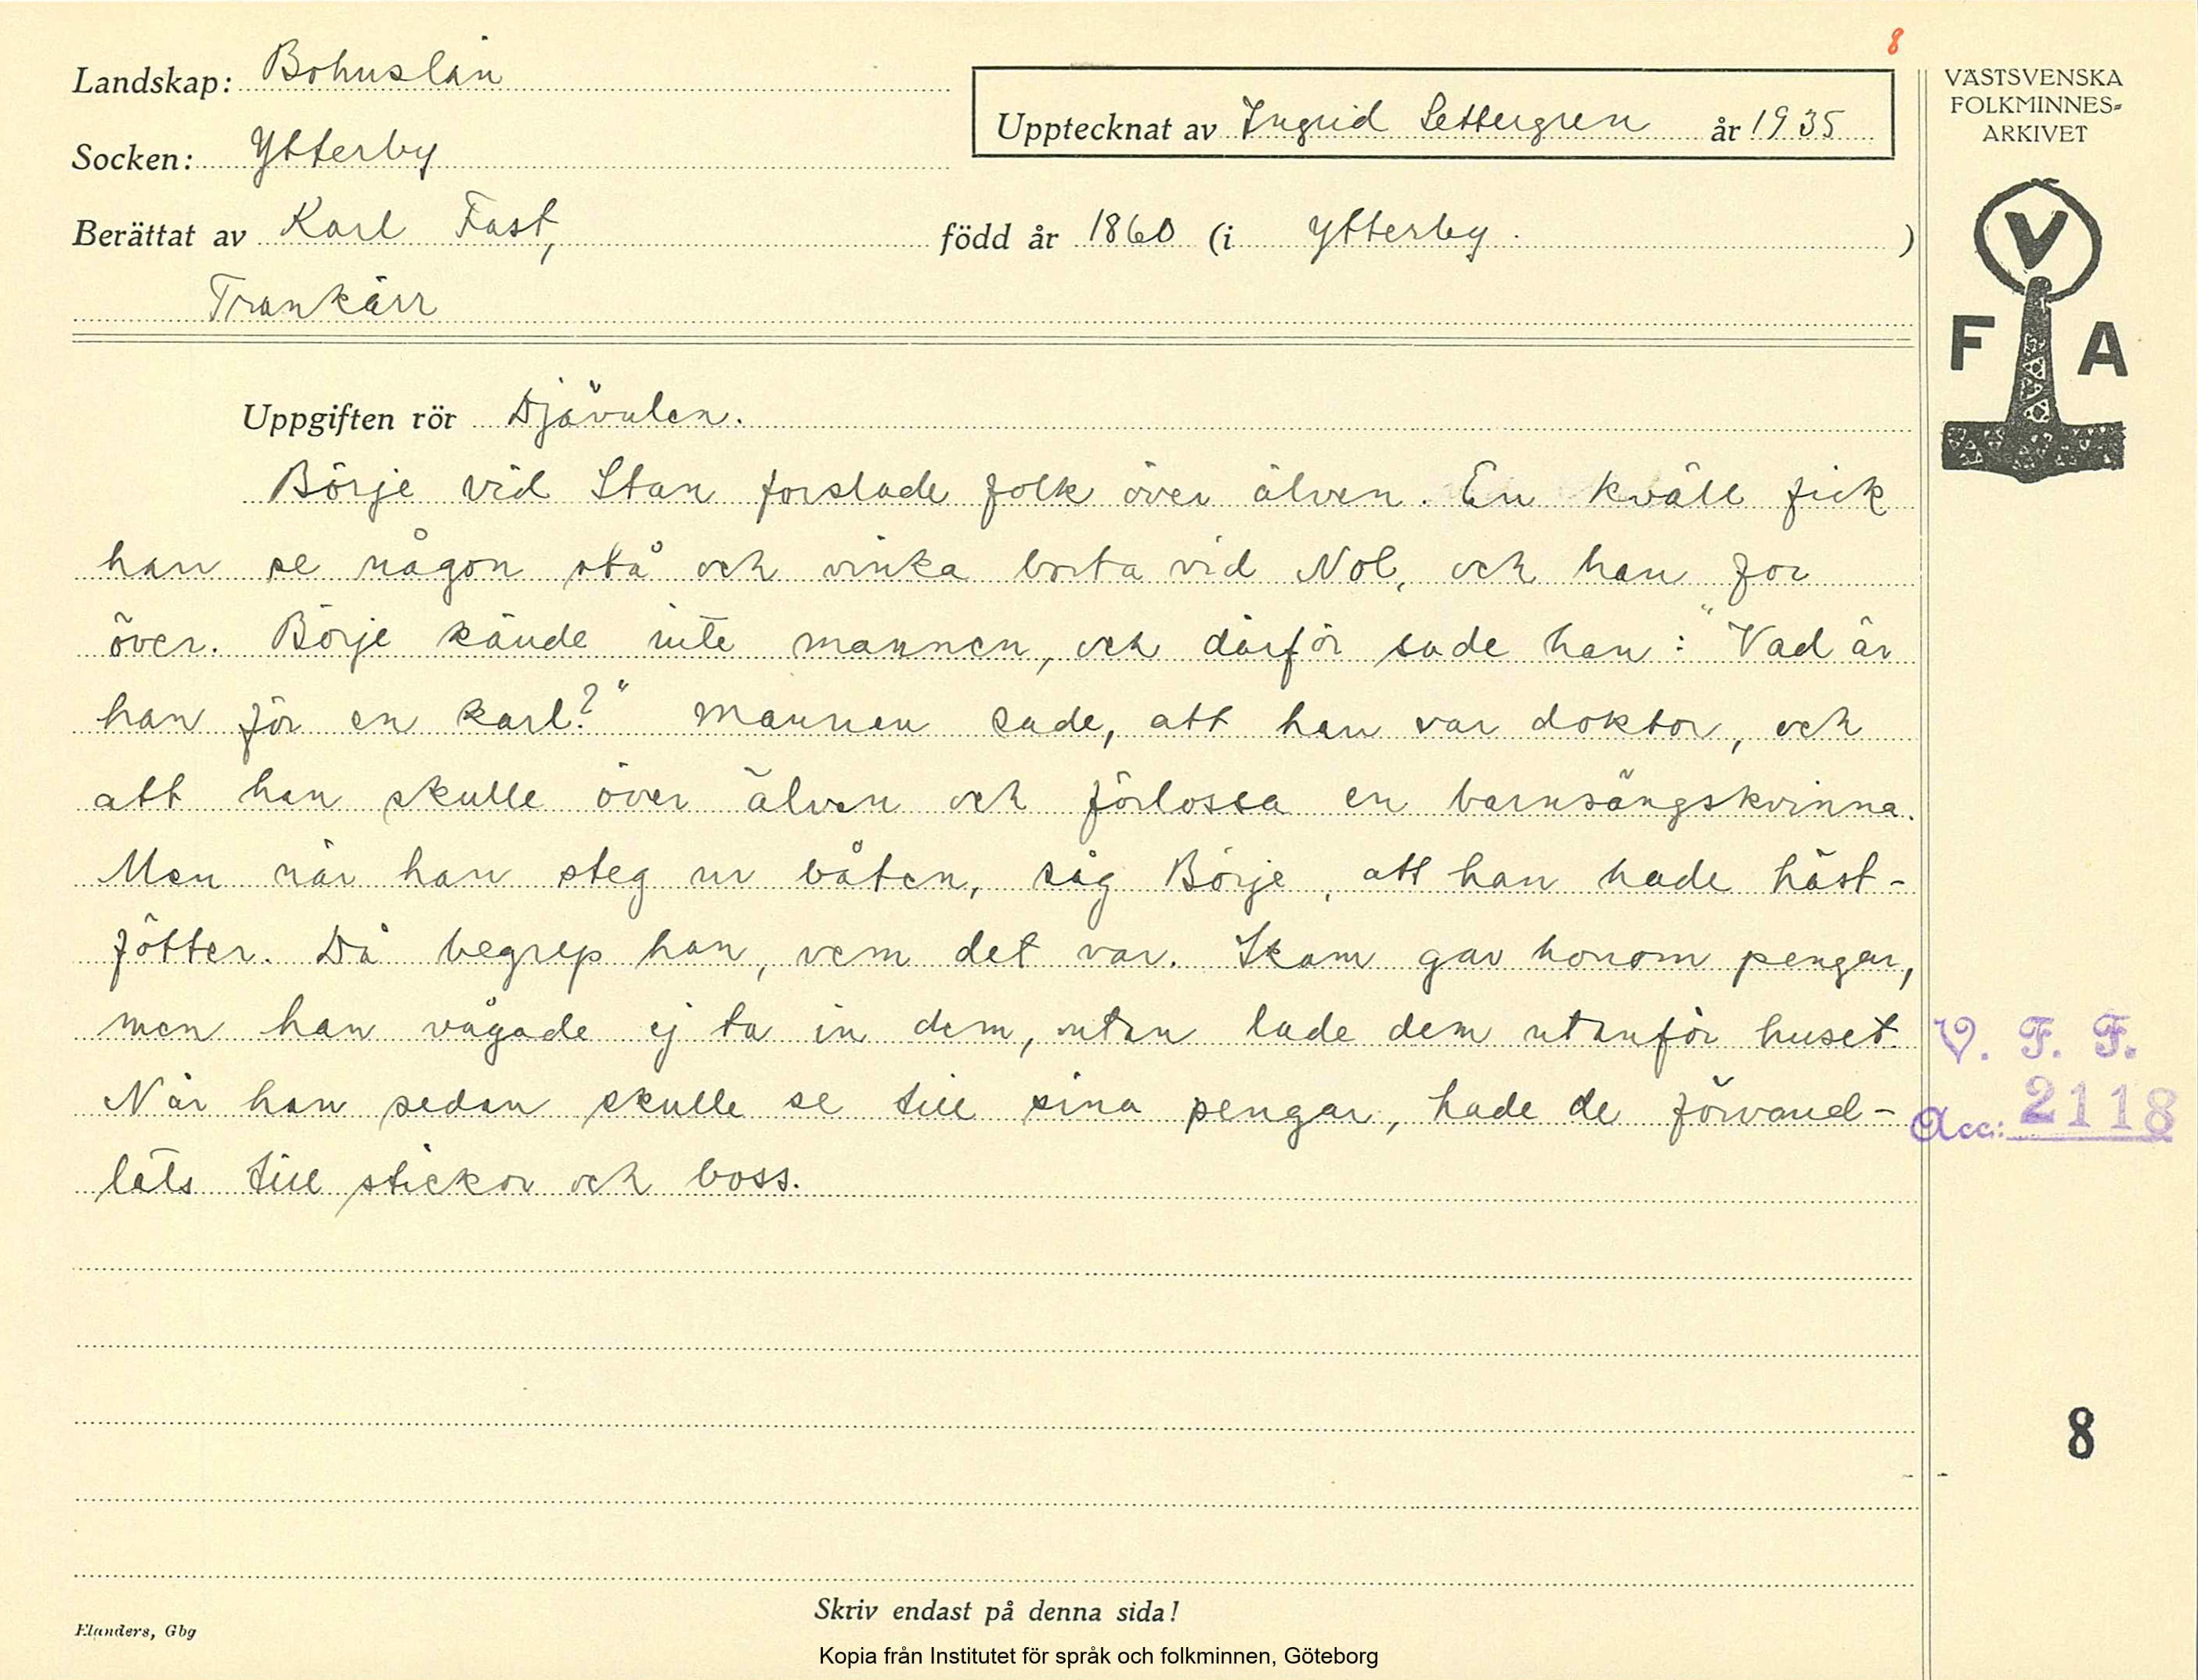 8
Landskap: Bohuslän
Upptecknat av Ingrid Settergren år 1935
VÄSTSVENSKA
FOLKMINNES-
ARKIVET
Socken: Ytterby
Berättat av Karl Fast, född år 1860 (i Ytterby. )
Trankärr
V
F A
Uppgiften rör Djävulen.
Börje vid Stan forslade folk över älven. En kväll fick
han se någon stå och vinka borta vid Nol, och han for
över. Börje kände inte mannen, och därför sade han: "Vad är
han för en karl?" Mannen sade, att han var doktor, och
att han skulle över älven och förlossa en barnsängskvinna.
Men när han steg ur båten, såg Börje, att han hade häst-
fötter. Då begrep han, vem det var. Skam gav honom pengar,
men han vågade ej ta in dem, utan lade dem utanför huset.
När han sedan skulle se till sina pengar, hade de förvand-
lats till stickor och boss.
V. F. F.
Acc: 2118
8
Skriv endast på denna sida!
Elanders, Gbg
Kopia från Institutet för språk och folkminnen, Göteborg